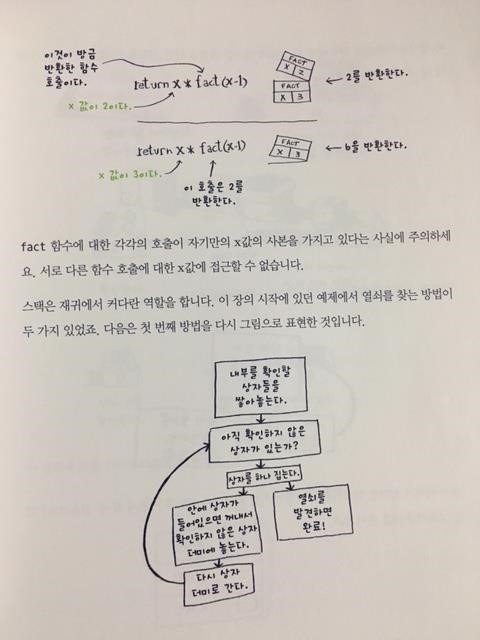 이것이 방금
반환한 함수
호출이다.
return x * fact(x-1)
x 값이 2이다.
FACT
X 2
FACT
X 3
← 2를 반환한다.
return x * fact(x-1)
x 값이 3이다.
이 호출은 2를
반환한다.
FACT
X 3
← 6을 반환한다.
fact 함수에 대한 각각의 호출이 자기만의 x값의 사본을 가지고 있다는 사실에 주의하세
요. 서로 다른 함수 호출에 대한 x값에 접근할 수 없습니다.
스택은 재귀에서 커다란 역할을 합니다. 이 장의 시작에 있던 예제에서 열쇠를 찾는 방법이
두 가지 있었죠. 다음은 첫 번째 방법을 다시 그림으로 표현한 것입니다.
내부를 확인할
상자들을
쌓아놓는다.
아직 확인하지 않은
상자가 있는가?
상자를 하나 집는다.
안에 상자가
들어있으면 꺼내서
확인하지 않은 상자
더미에 놓는다.
열쇠를
발견하면
완료!
다시 상자
더미로 간다.